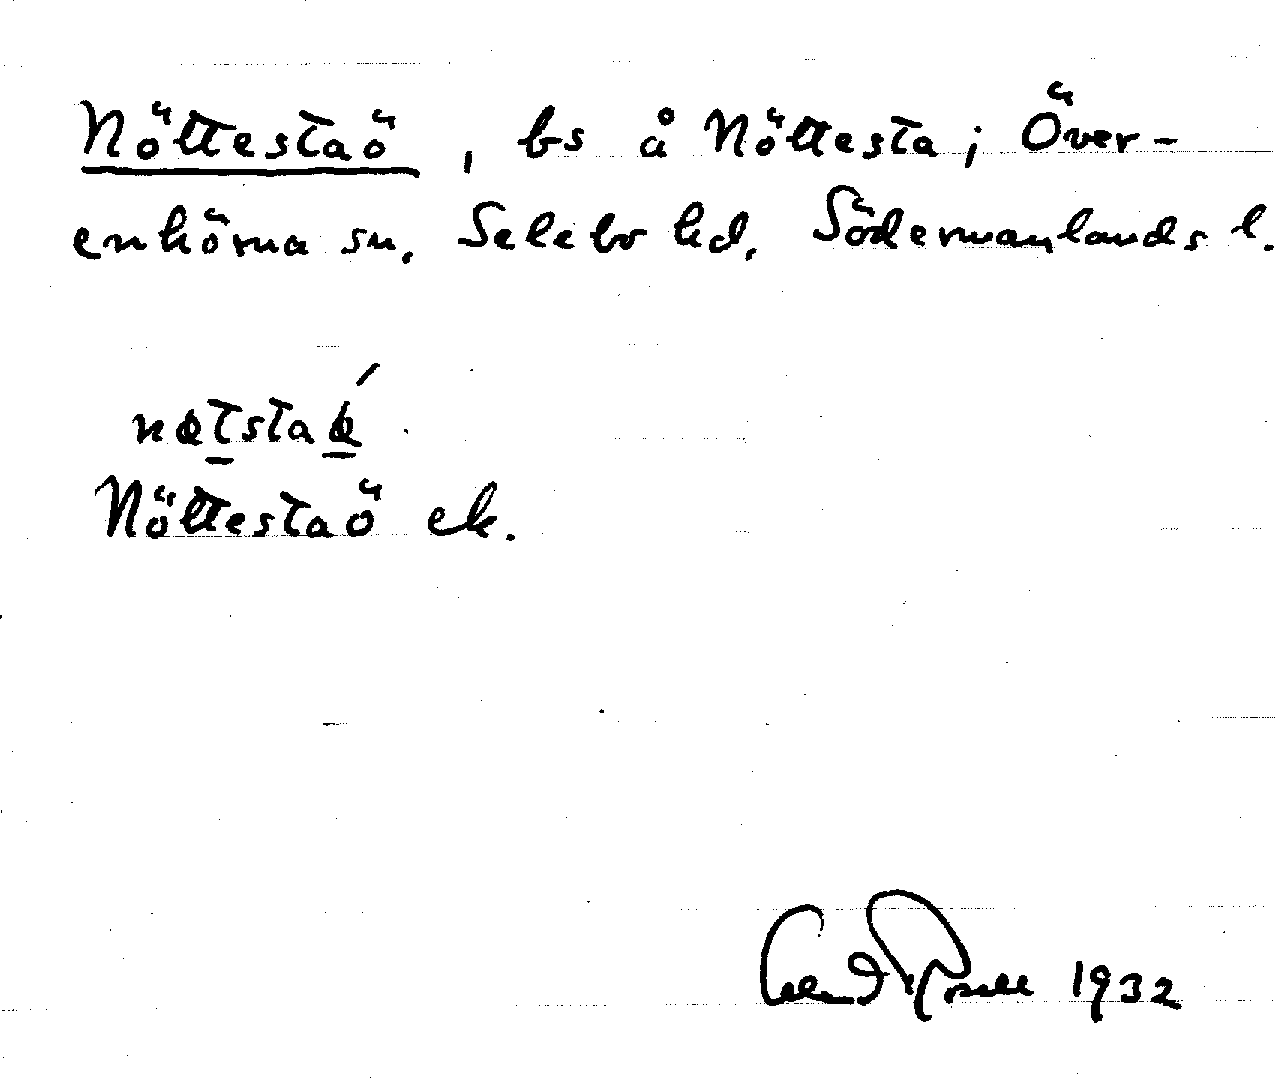 Nöttestaö, bs å Nöttesta; Över-
enhörna sn. Selebo hd. Södermanlands l.
Nöttestaö ek.
1932